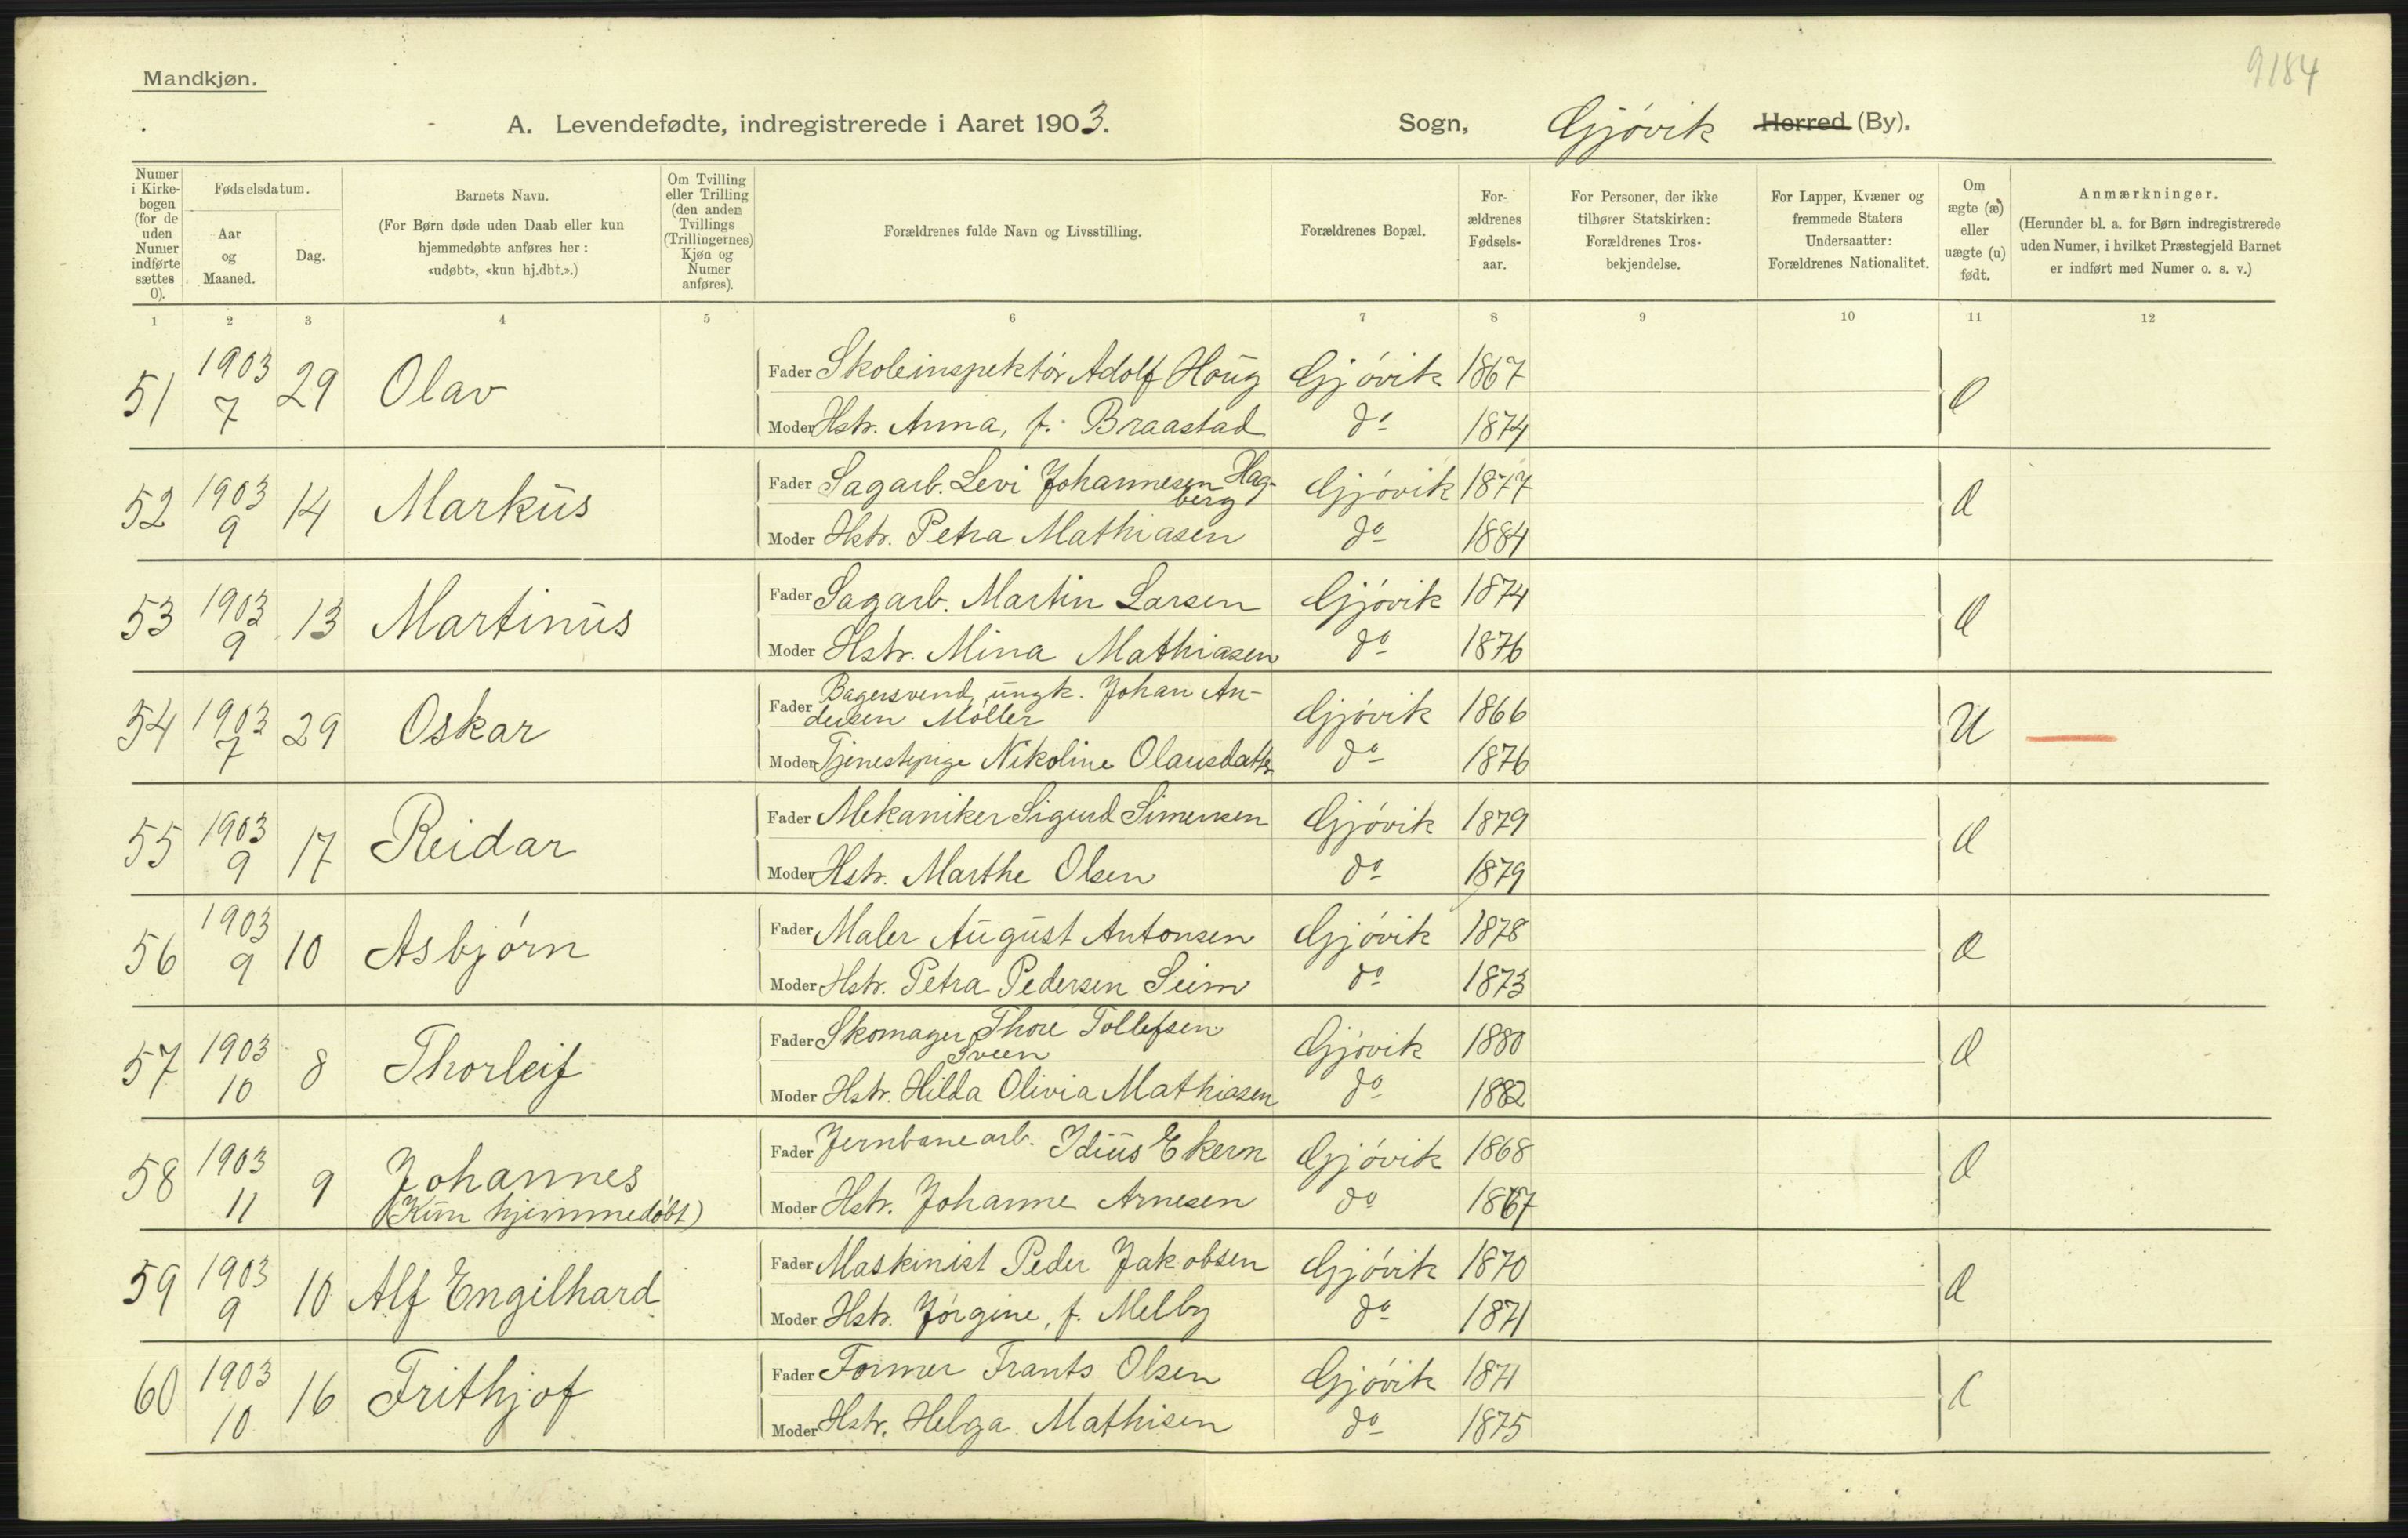 9184
Mandkjøn.
A. Levendefødte, indregistrerede i Aaret 1903. Sogn, Gjövik Herred (By).
Numer i Kirkebogen (for de uden Numer indførte sættes 0).
Fødselsdatum.
Aar og Maaned.
Dag.
Barnets Navn.
(For Børn døde uden Daab eller kun hjemmedøbte anføres her: «udøbt», «kun hj.dbt.».)
Om Tvilling eller Trilling (den anden Tvillings (Trillingernes) Kjøn og Numer anføres).
Forældrenes fulde Navn og Livsstilling.
Forældrenes Bopæl.
Forældrenes Fødselsaar.
For Personer, der ikke tilhører Statskirken: Forældrenes Trosbekjendelse.
For Lapper, Kvæner og fremmede Staters Undersaatter: Forældrenes Nationalitet.
Om ægte (æ) eller uægte (u) født.
Anmærkninger.
(Herunder bl. a. for Børn indregistrerede uden Numer, i hvilket Præstegjeld Barnet er indført med Numer o. s. v.)
1 2 3 4 5 6 7 8 9 10 11 12
51 1903 7 29 Olav
Fader Skoleinspektör Adolf Houg Gjövik 1867
Moder Hstr. Anna, f. Braastad do 1874
Æ
52 1903 9 14 Markus
Fader Sagarb. Levi Johannesen Hagberg Gjövik 1877
Moder Hstr. Petra Mathiasen do 1884
Æ
53 1903 9 13 Martinus
Fader Sagarb. Martin Larsen Gjövik 1874
Moder Hstr. Mina Mathiasen do 1876
Æ
54 1903 7 29 Oskar
Fader Bagersvend, ungk. Johan An-
dersen Möller Gjövik 1866
Moder Tjenestepige Nikoline Olausdatter do 1876
U
55 1903 9 17 Reidar
Fader Mekaniker Sigurd Simensen Gjövik 1879
Moder Hstr. Marthe Olsen do 1879
Æ
56 1903 9 10 Asbjörn
Fader Maler August Antonsen Gjövik 1878
Moder Hstr. Petra Pedersen Seim do 1873
Æ
57 1903 10 8 Thorleif
Fader Skomager Thore Tollefsen
Sveen Gjövik 1880
Moder Hstr. Hilda Olivia Mathiasen do 1882
Æ
58 1903 11 9 Johannes
(Kun hjemmedöbt)
Fader Jernbanearb. Idius Ekern Gjövik 1868
Moder Hstr. Johanne Arnesen do 1867
Æ
59 1903 9 10 Alf Engilhard
Fader Maskinist Peder Jakobsen Gjövik 1870
Moder Hstr. Jörgine, f. Melby do 1871
Æ
60 1903 10 16 Frithjof
Fader Former Frants Olsen Gjövik 1871
Moder Hstr. Helga Mathisen do 1875
Æ